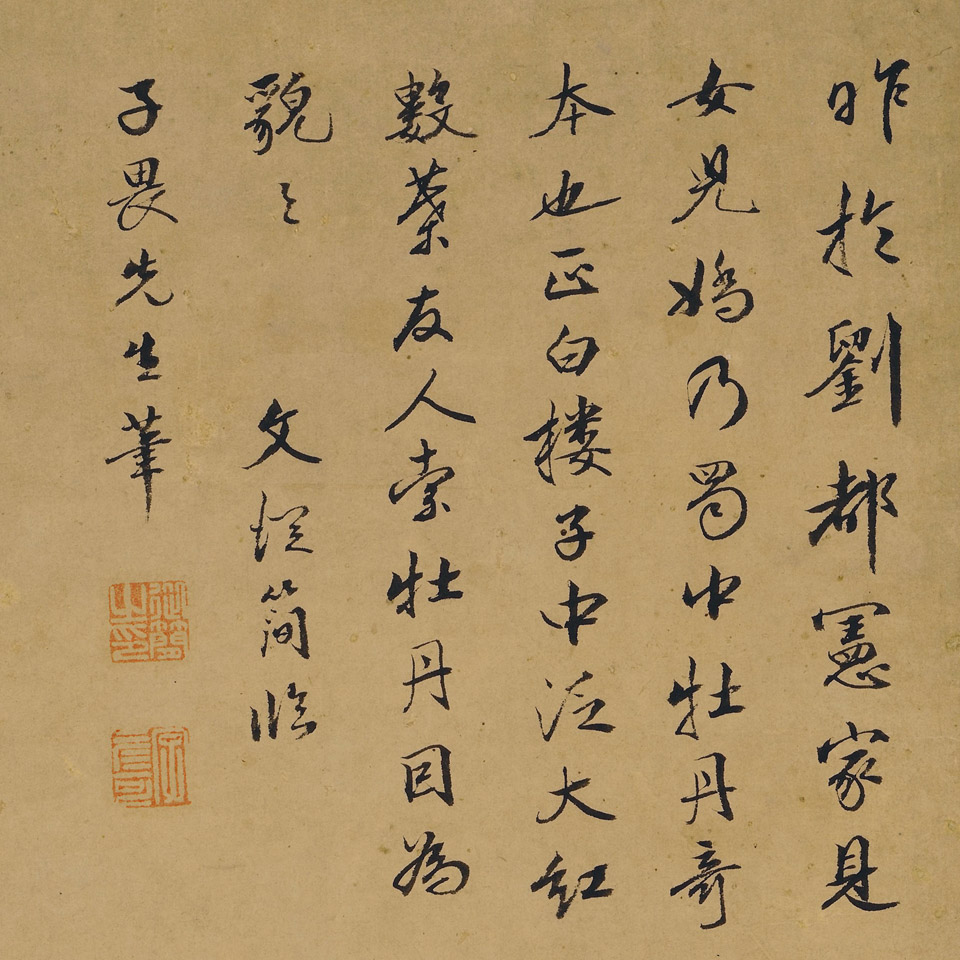 昨於劉都憲家見
女兒嬌乃蜀中牡丹奇
本也正白楼子中泛大紅
數葉友人索牡丹因為
貌之 文從簡臨
子畏先生筆